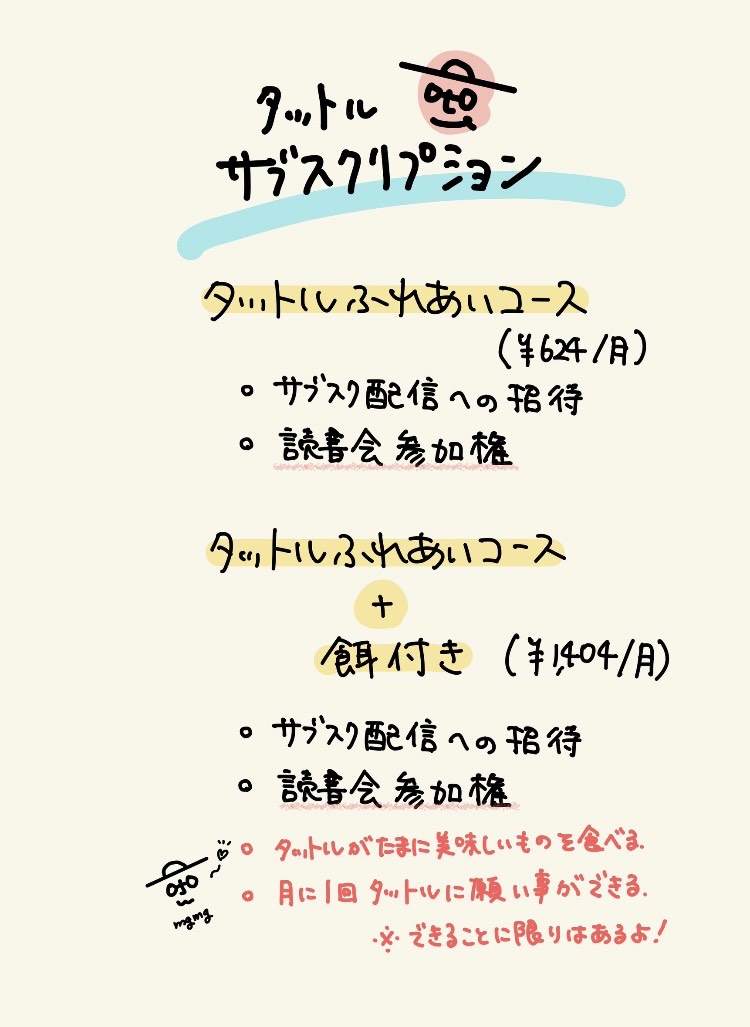 タットル
サブスクリプション
タットルふれあいコース
(¥624/月)
○ サブスク配信への招待
○ 読書会参加権
タットルふれあいコース
+
餌付き (¥1,404/月)
○ サブスク配信への招待
○ 読書会参加権
○ タットルがたまに美味しいものを食べる.
○ 月に1回タットルに願い事ができる.
mgmg
※できることに限りはあるよ!